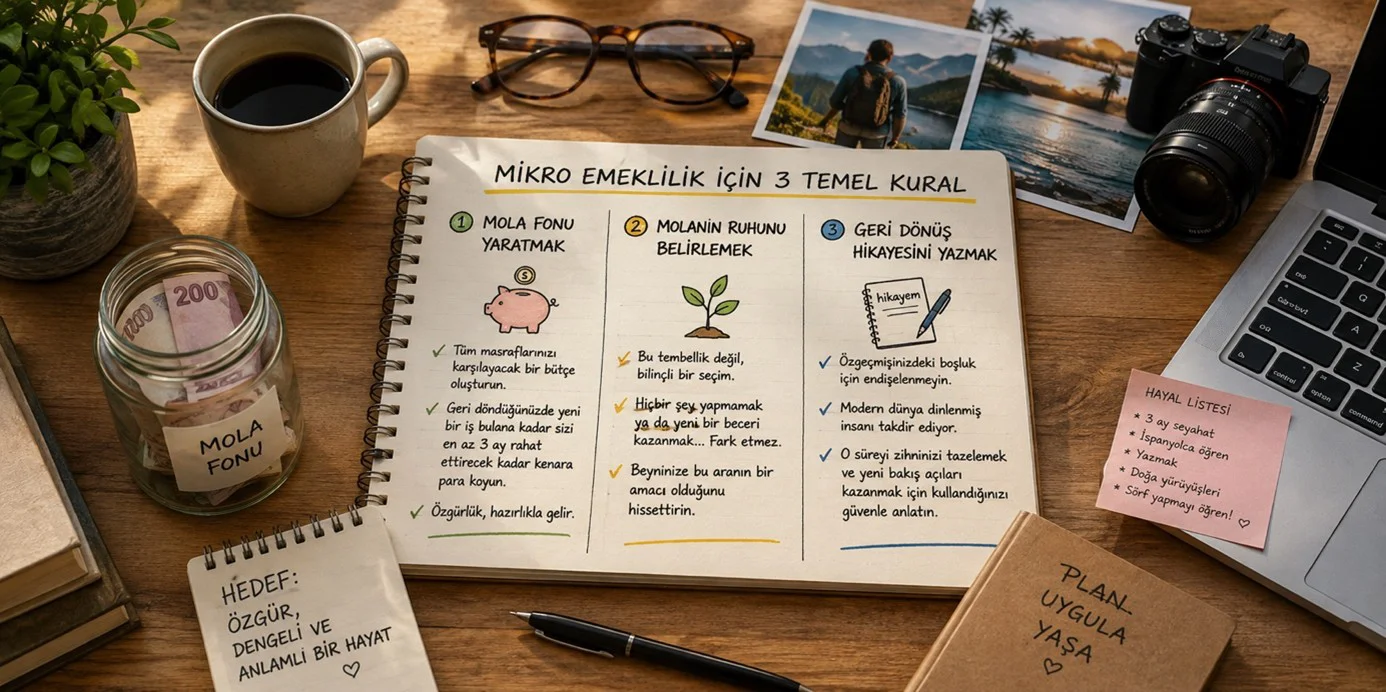 MİKRO EMEKLİLİK İÇİN 3 TEMEL KURAL
1 MOLA FONU
YARATMAK
Tüm masraflarınızı
karşılayacak bir bütçe
oluşturun.
Geri döndüğünüzde yeni
bir iş bulana kadar sizi
en az 3 ay rahat
ettirecek kadar kenara
para koyun.
Özgürlük, hazırlıkla gelir.
2 MOLANIN RUHUNU
BELİRLEMEK
Bu tembellik değil,
bilinçli bir seçim.
Hiçbir şey yapmamak
ya da yeni bir beceri
kazanmak... Fark etmez.
Beyninize bu aranın bir
amacı olduğunu
hissettirin.
3 GERİ DÖNÜŞ
HİKAYESİNİ YAZMAK
hikayem
Özgeçmişinizdeki boşluk
için endişelenmeyin.
Modern dünya dinlenmiş
insanı takdir ediyor.
O süreyi zihninizi tazelemek
ve yeni bakış açıları
kazanmak için kullandığınızı
güvenle anlatın.
200
MOLA
FONU
HEDEF:
ÖZGÜR,
DENGELİ VE
ANLAMLI BİR HAYAT
HAYAL LİSTESİ
* 3 ay seyahat
* İspanyolca öğren
* Yazmak
* Doğa yürüyüşleri
* Sörf yapmayı öğren!
PLAN
UYGULA
YAŞA